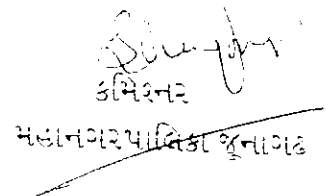 કમિશ્નર
મહાનગરપાલિકા જૂનાગઢ